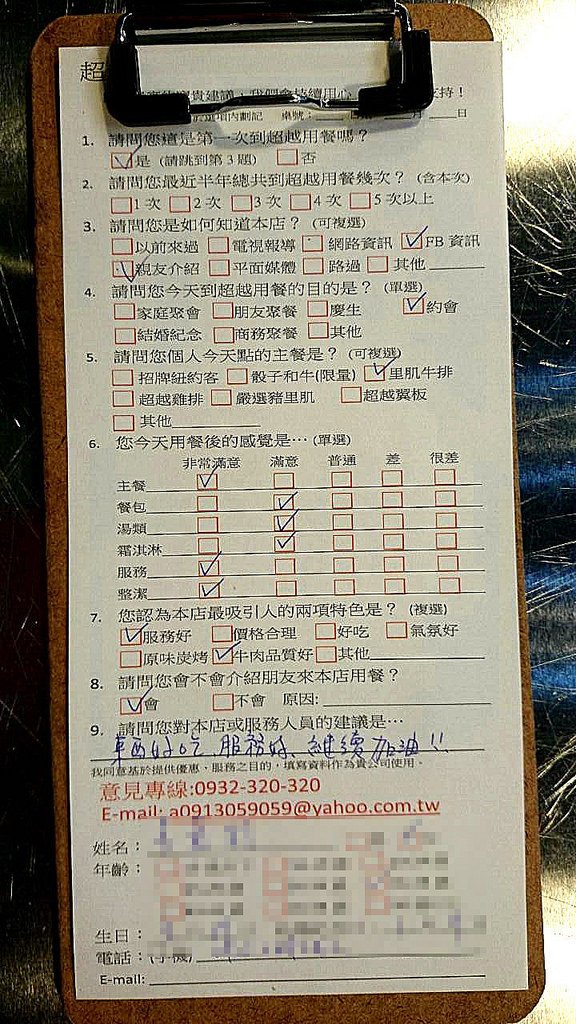 超
貴建議，我們會持續用心 支持！
選項內劃記 桌號：＿＿ 月＿＿日
1. 請問您這是第一次到超越用餐嗎？
是 (請跳到第 3 題) 否
2. 請問您最近半年總共到超越用餐幾次？ (含本次)
1 次 2 次 3 次 4 次 5 次以上
3. 請問您是如何知道本店？ (可複選)
以前來過 電視報導 網路資訊 FB 資訊
親友介紹 平面媒體 路過 其他
4. 請問您今天到超越用餐的目的是？ (單選)
家庭聚會 朋友聚餐 慶生 約會
結婚紀念 商務聚餐 其他
5. 請問您個人今天點的主餐是？ (可複選)
招牌紐約客 骰子和牛(限量) 里肌牛排
超越雞排 嚴選豬里肌 超越翼板
其他
6. 您今天用餐後的感覺是… (單選)
非常滿意 滿意 普通 差 很差
主餐
餐包
湯類
霜淇淋
服務
整潔
7. 您認為本店最吸引人的兩項特色是？ (複選)
服務好 價格合理 好吃 氣氛好
原味炭烤 牛肉品質好 其他
8. 請問您會不會介紹朋友來本店用餐？
會 不會 原因:
9. 請問您對本店或服務人員的建議是…
東西好吃 服務好 繼續加油!!
我同意基於提供優惠、服務之目的，填寫資料作為貴公司使用。
意見專線:0932-320-320
E-mail: a0913059059@yahoo.com.tw
姓名：
年齡：
生日：
電話：(手機)
E-mail: